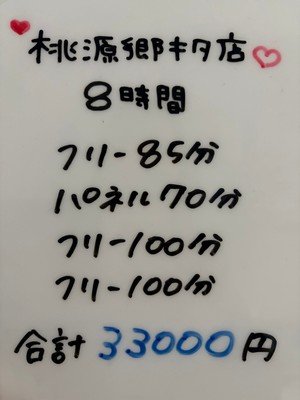 桃源郷キタ店
8時間
フリー85分
パネル70分
フリー100分
フリー100分
合計33000円